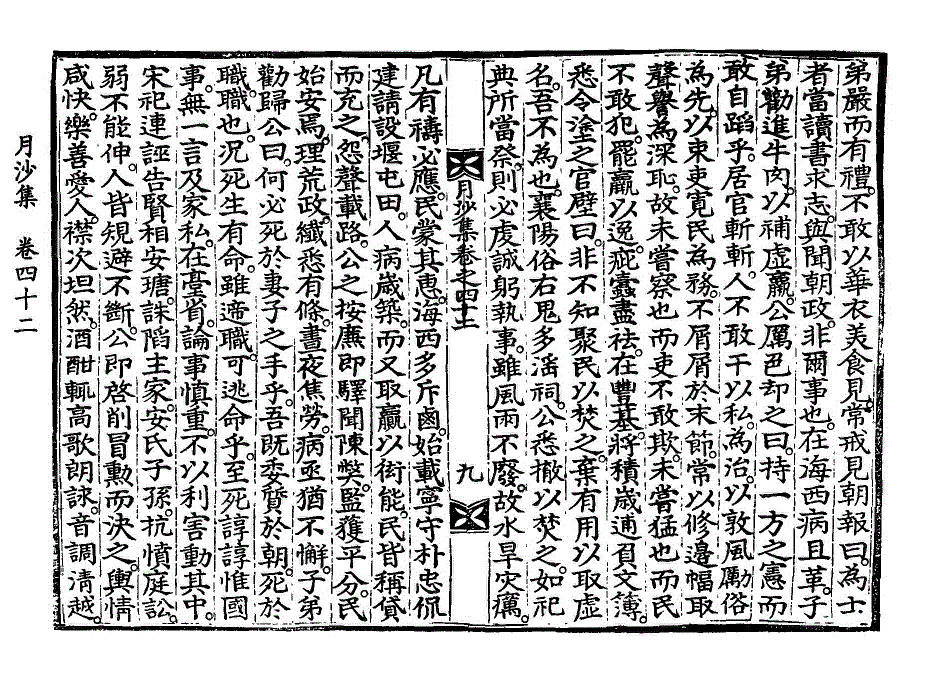 弟嚴而有禮。不敢以華衣美食見。常戒見朝報曰。爲士
者當讀書求志。與聞朝政。非爾事也。在海西病且革。子
弟勸進牛肉。以補虛羸。公厲色却之曰。持一方之憲而
敢自蹈乎。居官斬斬。人不敢干以私。爲治。以敦風勵俗
爲先。以束吏寬民爲務。不屑屑於末節。常以修邊幅取
聲譽爲深恥。故未嘗察也而吏不敢欺。未嘗猛也而民
不敢犯。罷羸以逸。疵蠹盡祛。在豐基。將積歲逋負文簿。
悉令塗之官壁曰。非不知聚民以焚之。棄有用以取虛
名。吾不爲也。襄陽俗右鬼多淫祠。公悉撤以焚之。如祀
典所當祭。則必虔誠躬執事。雖風雨不廢。故水旱灾癘。
月沙集卷之四十二
九
凡有禱必應。民蒙其惠。海西多斥鹵。始載寧守朴忠侃
建請設堰屯田。人病歲築。而又取羸以衒能。民皆稱貸
而充之。怨聲載路。公之按廉。卽驛聞陳弊。監獲平分。民
始安焉。理荒政。纖悉有條。書夜焦勞。病亟猶不懈。子弟
勸歸。公曰。何必死於妻子之手乎。吾旣委質於朝。死於
職職也。况死生有命。雖適職。可逃命乎。至死諄諄惟國
事。無一言及家私。在臺省。論事愼重。不以利害動其中。
宋祀連誣告賢相安瑭。誅陷主家。安氏子孫。抗憤庭訟。
弱不能伸。人皆規避不斷。公卽啓削冒勳而決之。輿情
咸快。樂善愛人。襟次坦然。酒酣輒高歌朗詠。音調淸越。
月沙集 卷四十二